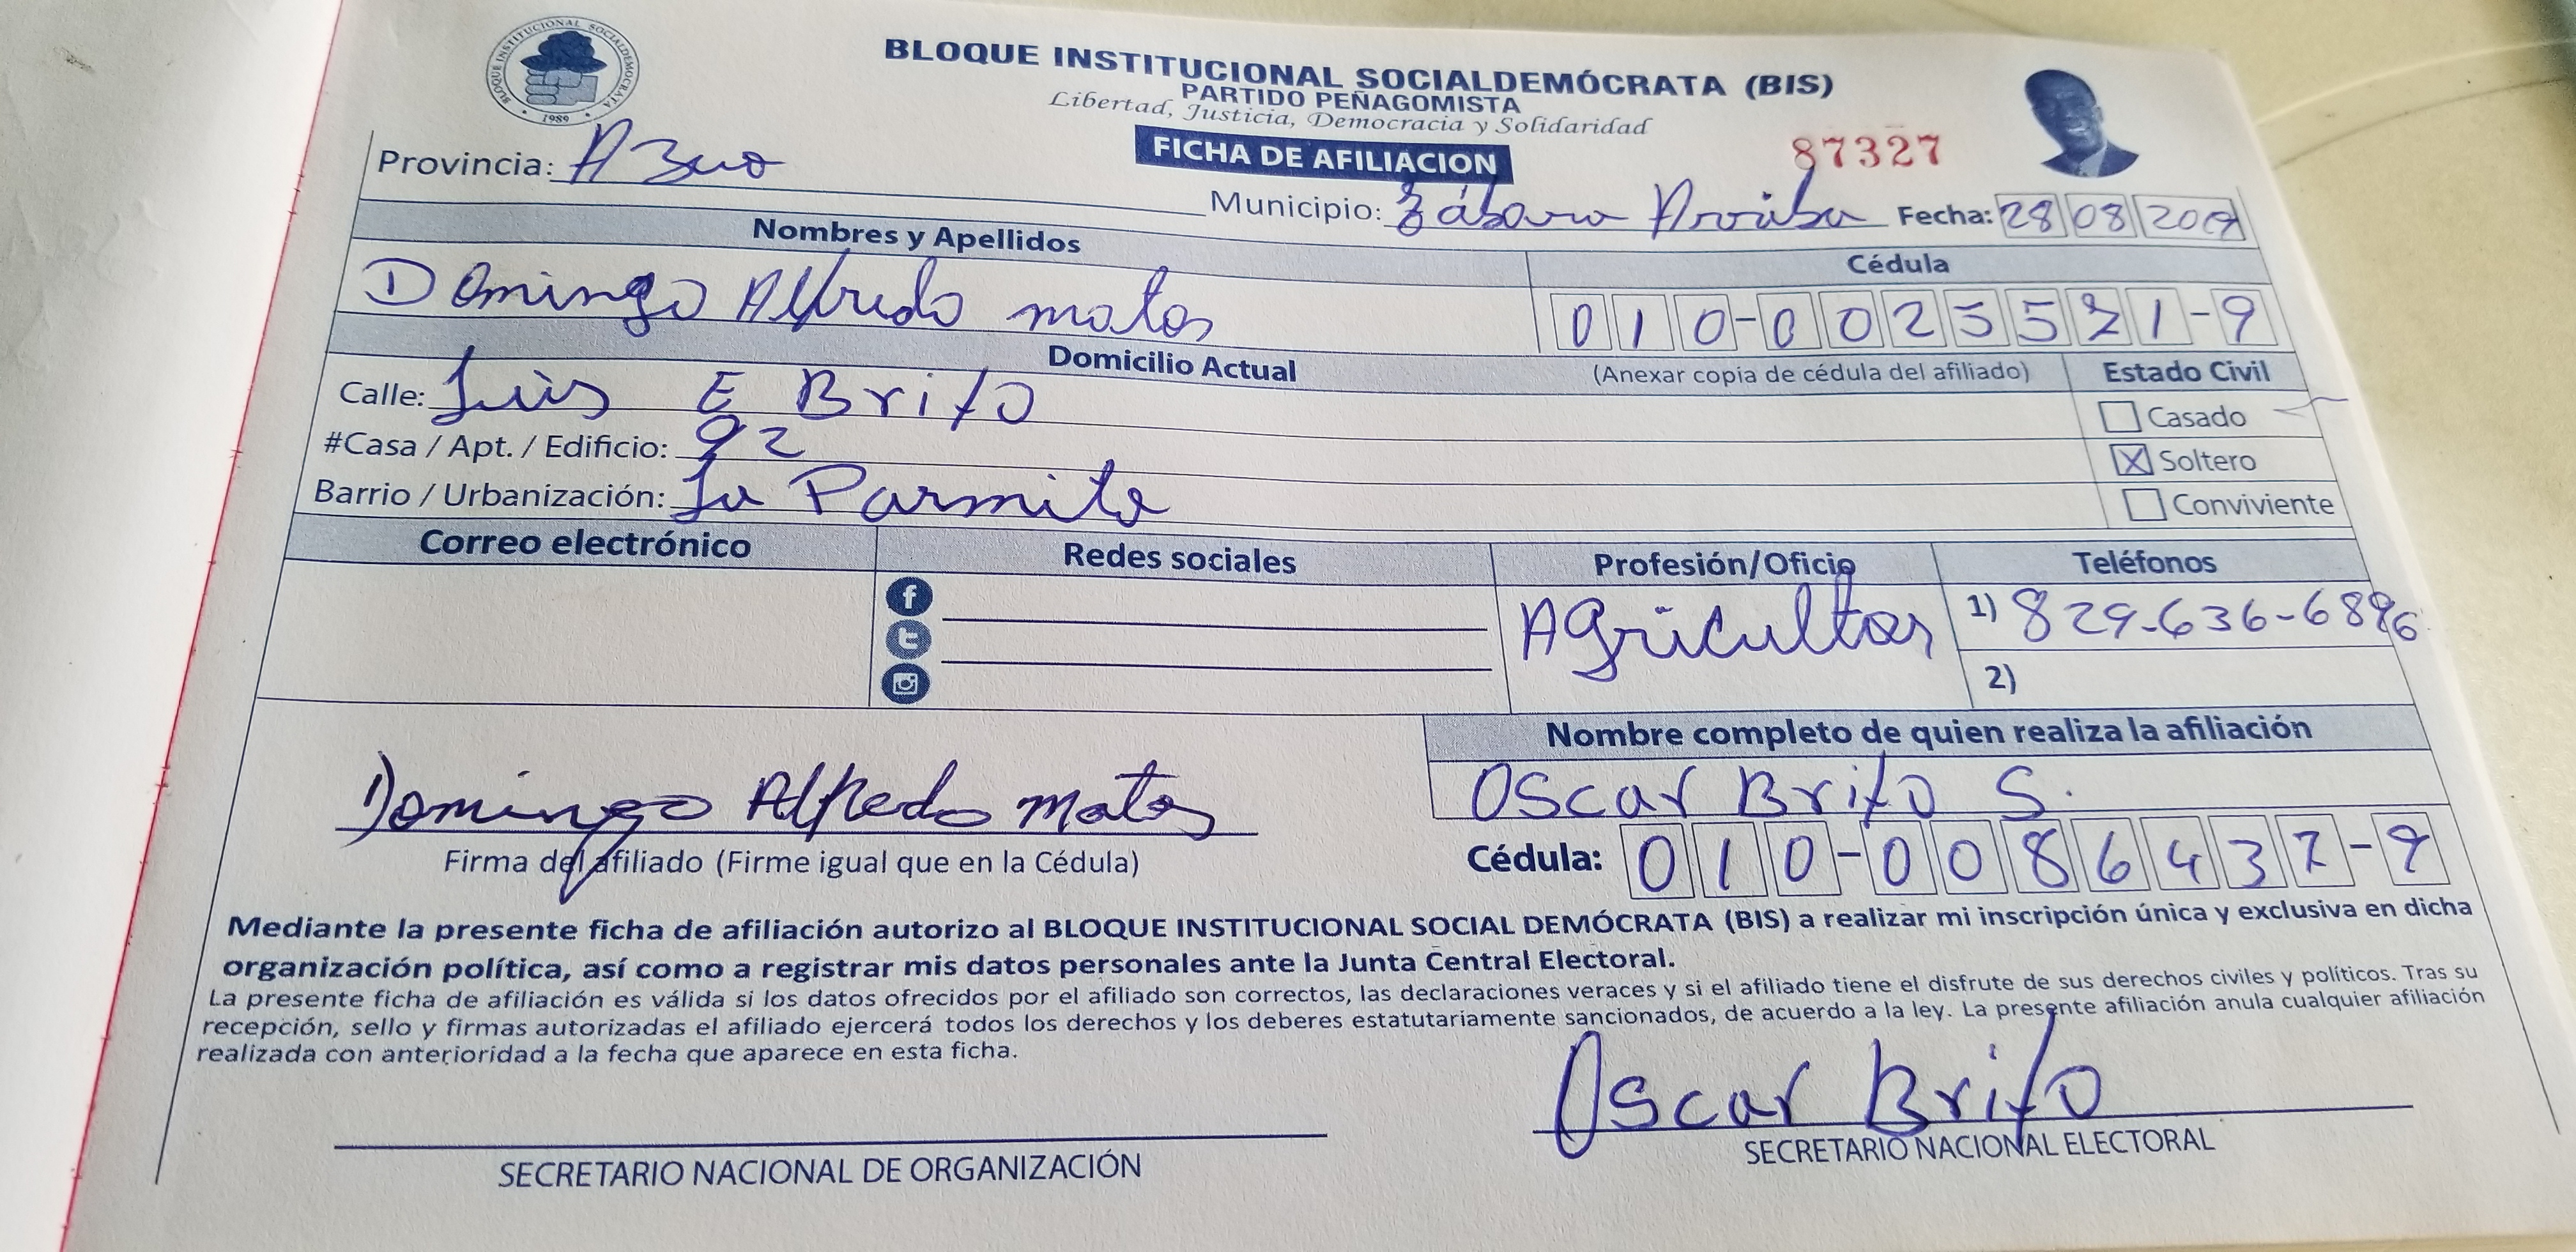 BLOQUE INSTITUCIONAL SOCIALDEMOCRATA
1989
BLOQUE INSTITUCIONAL SOCIALDEMÓCRATA (BIS)
PARTIDO PEÑAGOMISTA
Libertad, Justicia, Democracia y Solidaridad
FICHA DE AFILIACION
87327
Provincia: AZua
Municipio: Zábana Arriba Fecha: 28 08 2019
Nombres y Apellidos
Cédula
Domingo Alfredo matos
010-0025571-9
Domicilio Actual
(Anexar copia de cédula del afiliado)
Estado Civil
Calle: Luis E Brito
Casado
#Casa / Apt. / Edificio: 92
X Soltero
Barrio / Urbanización: La Parmita
Conviviente
Correo electrónico
Redes sociales
Profesión/Oficio
Teléfonos
AGricultor
1) 829-636-6896
2)
Nombre completo de quien realiza la afiliación
Oscar Brito S.
Domingo Alfredo Matos
Firma del afiliado (Firme igual que en la Cédula)
Cédula: 010-0086437-9
Mediante la presente ficha de afiliación autorizo al BLOQUE INSTITUCIONAL SOCIAL DEMÓCRATA (BIS) a realizar mi inscripción única y exclusiva en dicha
organización política, así como a registrar mis datos personales ante la Junta Central Electoral.
La presente ficha de afiliación es válida si los datos ofrecidos por el afiliado son correctos, las declaraciones veraces y si el afiliado tiene el disfrute de sus derechos civiles y políticos. Tras su
recepción, sello y firmas autorizadas el afiliado ejercerá todos los derechos y los deberes estatutariamente sancionados, de acuerdo a la ley. La presente afiliación anula cualquier afiliación
realizada con anterioridad a la fecha que aparece en esta ficha.
Oscar Brito
SECRETARIO NACIONAL DE ORGANIZACIÓN
SECRETARIO NACIONAL ELECTORAL